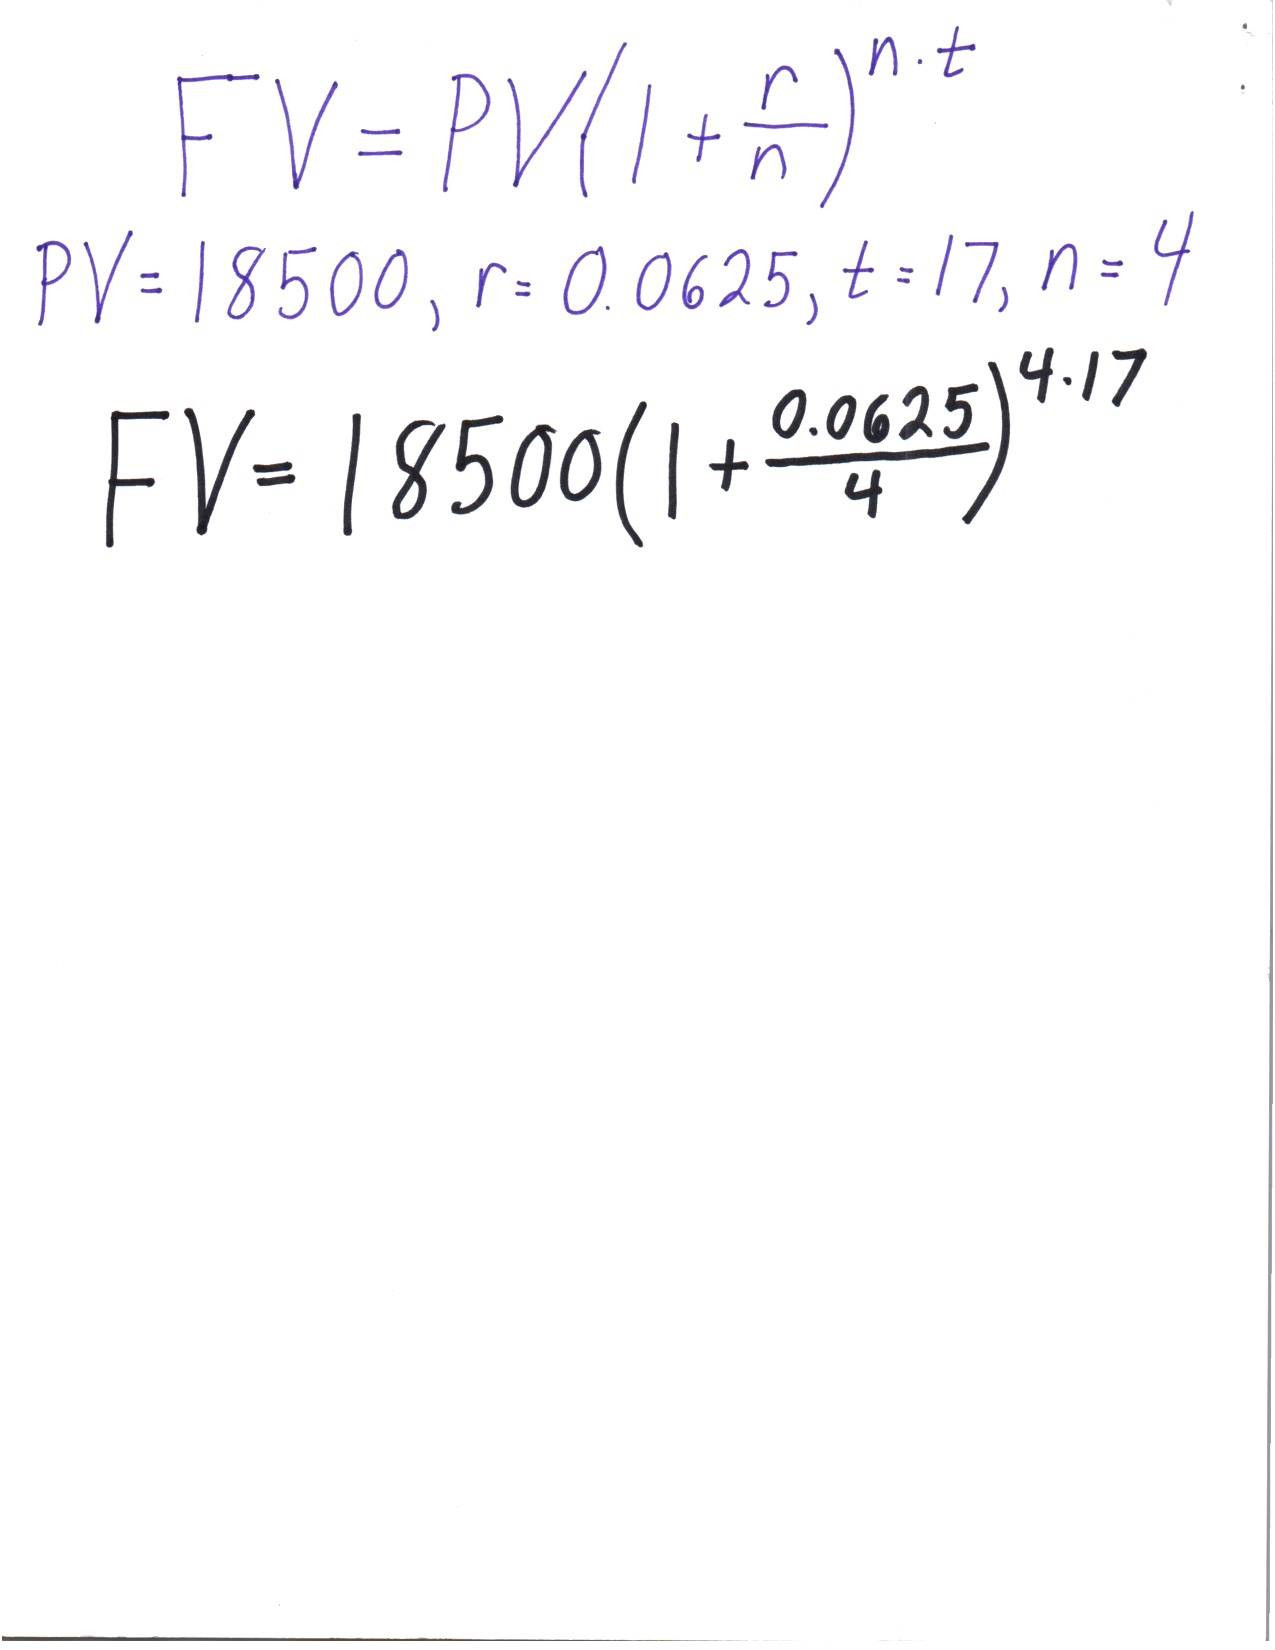 FV = PV(1 + r/n)^n·t
PV = 18500, r = 0.0625, t = 17, n = 4
FV = 18500(1 + 0.0625/4)^4·17